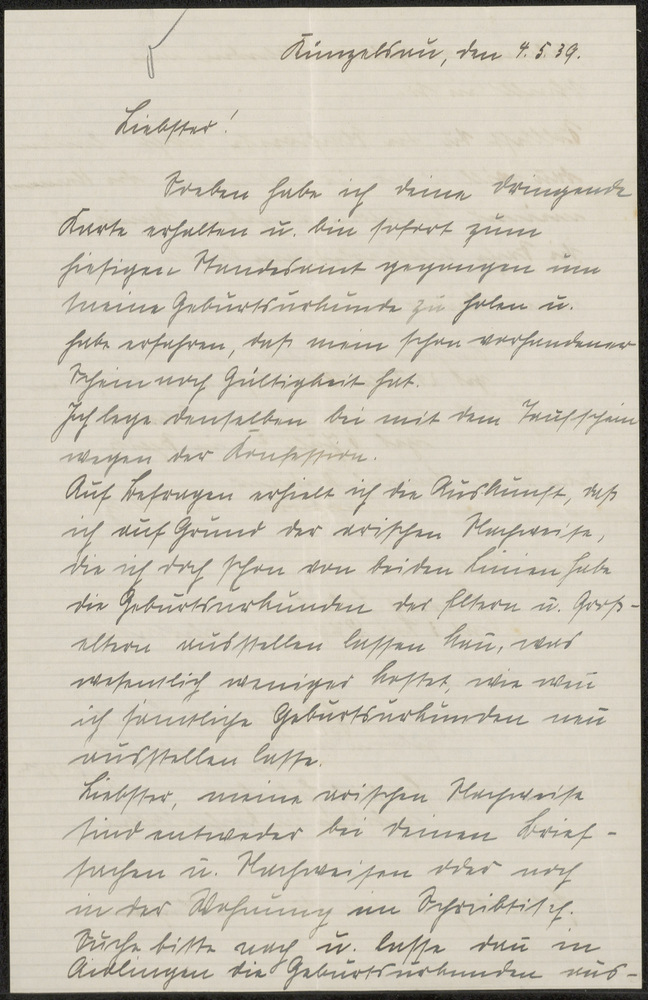 Künzelsau, den 4.5.39.
Liebster!
Soeben habe ich deine dringende
Karte erhalten u. bin sofort zum
hiesigen Standesamt gegangen um
meine Geburtsurkunde zu holen u.
habe erfahren, daß mein schon vorhandener
Schein noch Gültigkeit hat.
Ich lege denselben bei mit dem Taufschein
wegen der Konfession.
Auf Befragen erhielt ich die Auskunft, daß
ich auf Grund der arischen Nachweise,
die ich doch schon von beiden Linien habe
die Geburtsurkunden der Eltern u. Groß-
eltern ausstellen lassen kan, was
wesentlich weniger kostet, wie wen
ich sämtliche Geburtsurkunden neu
ausstellen lasse.
Liebster, meine arischen Nachweise
sind entweder bei deinen Brief-
sachen u. Nachweisen oder noch
in der Wohnung im Schreibtisch.
Suche bitte nach u. lasse dan in
Aidlingen die Geburtsurkunden aus-